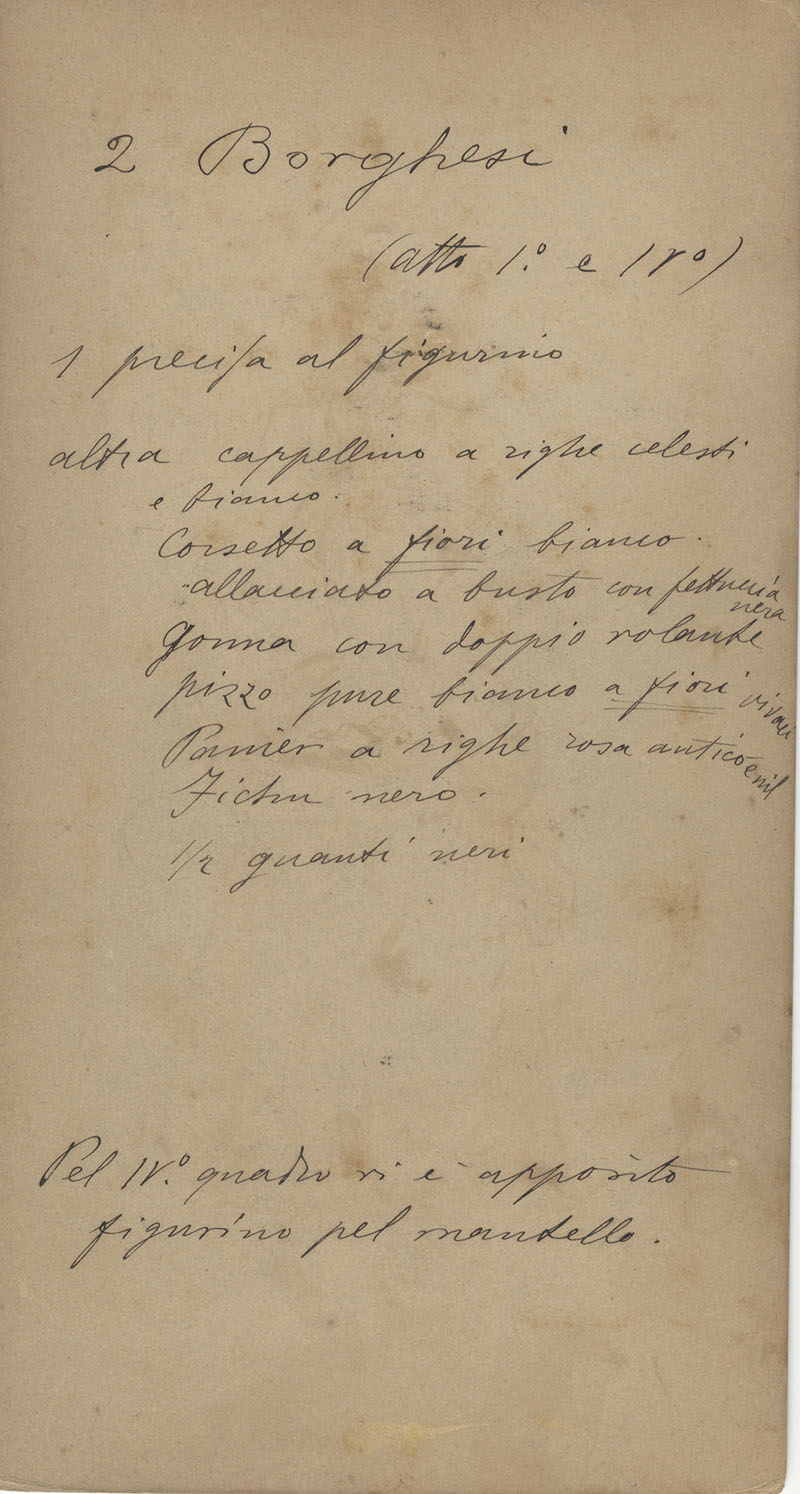 2 Borghesi
(atto 1.º e IVº)
1 precisa al figurino
altra cappellino a righe celesti
e bianco.
Corsetto a fiori bianco.
allacciato a busto con fettuccia
nera
Gonna con doppio volante
pizzo pure bianco a fiori vivaci
Panier a righe rosa antico e nil
Fichu nero.
1/2 guanti neri
Pel IV.º quadro vi è apposito
figurino pel mantello.